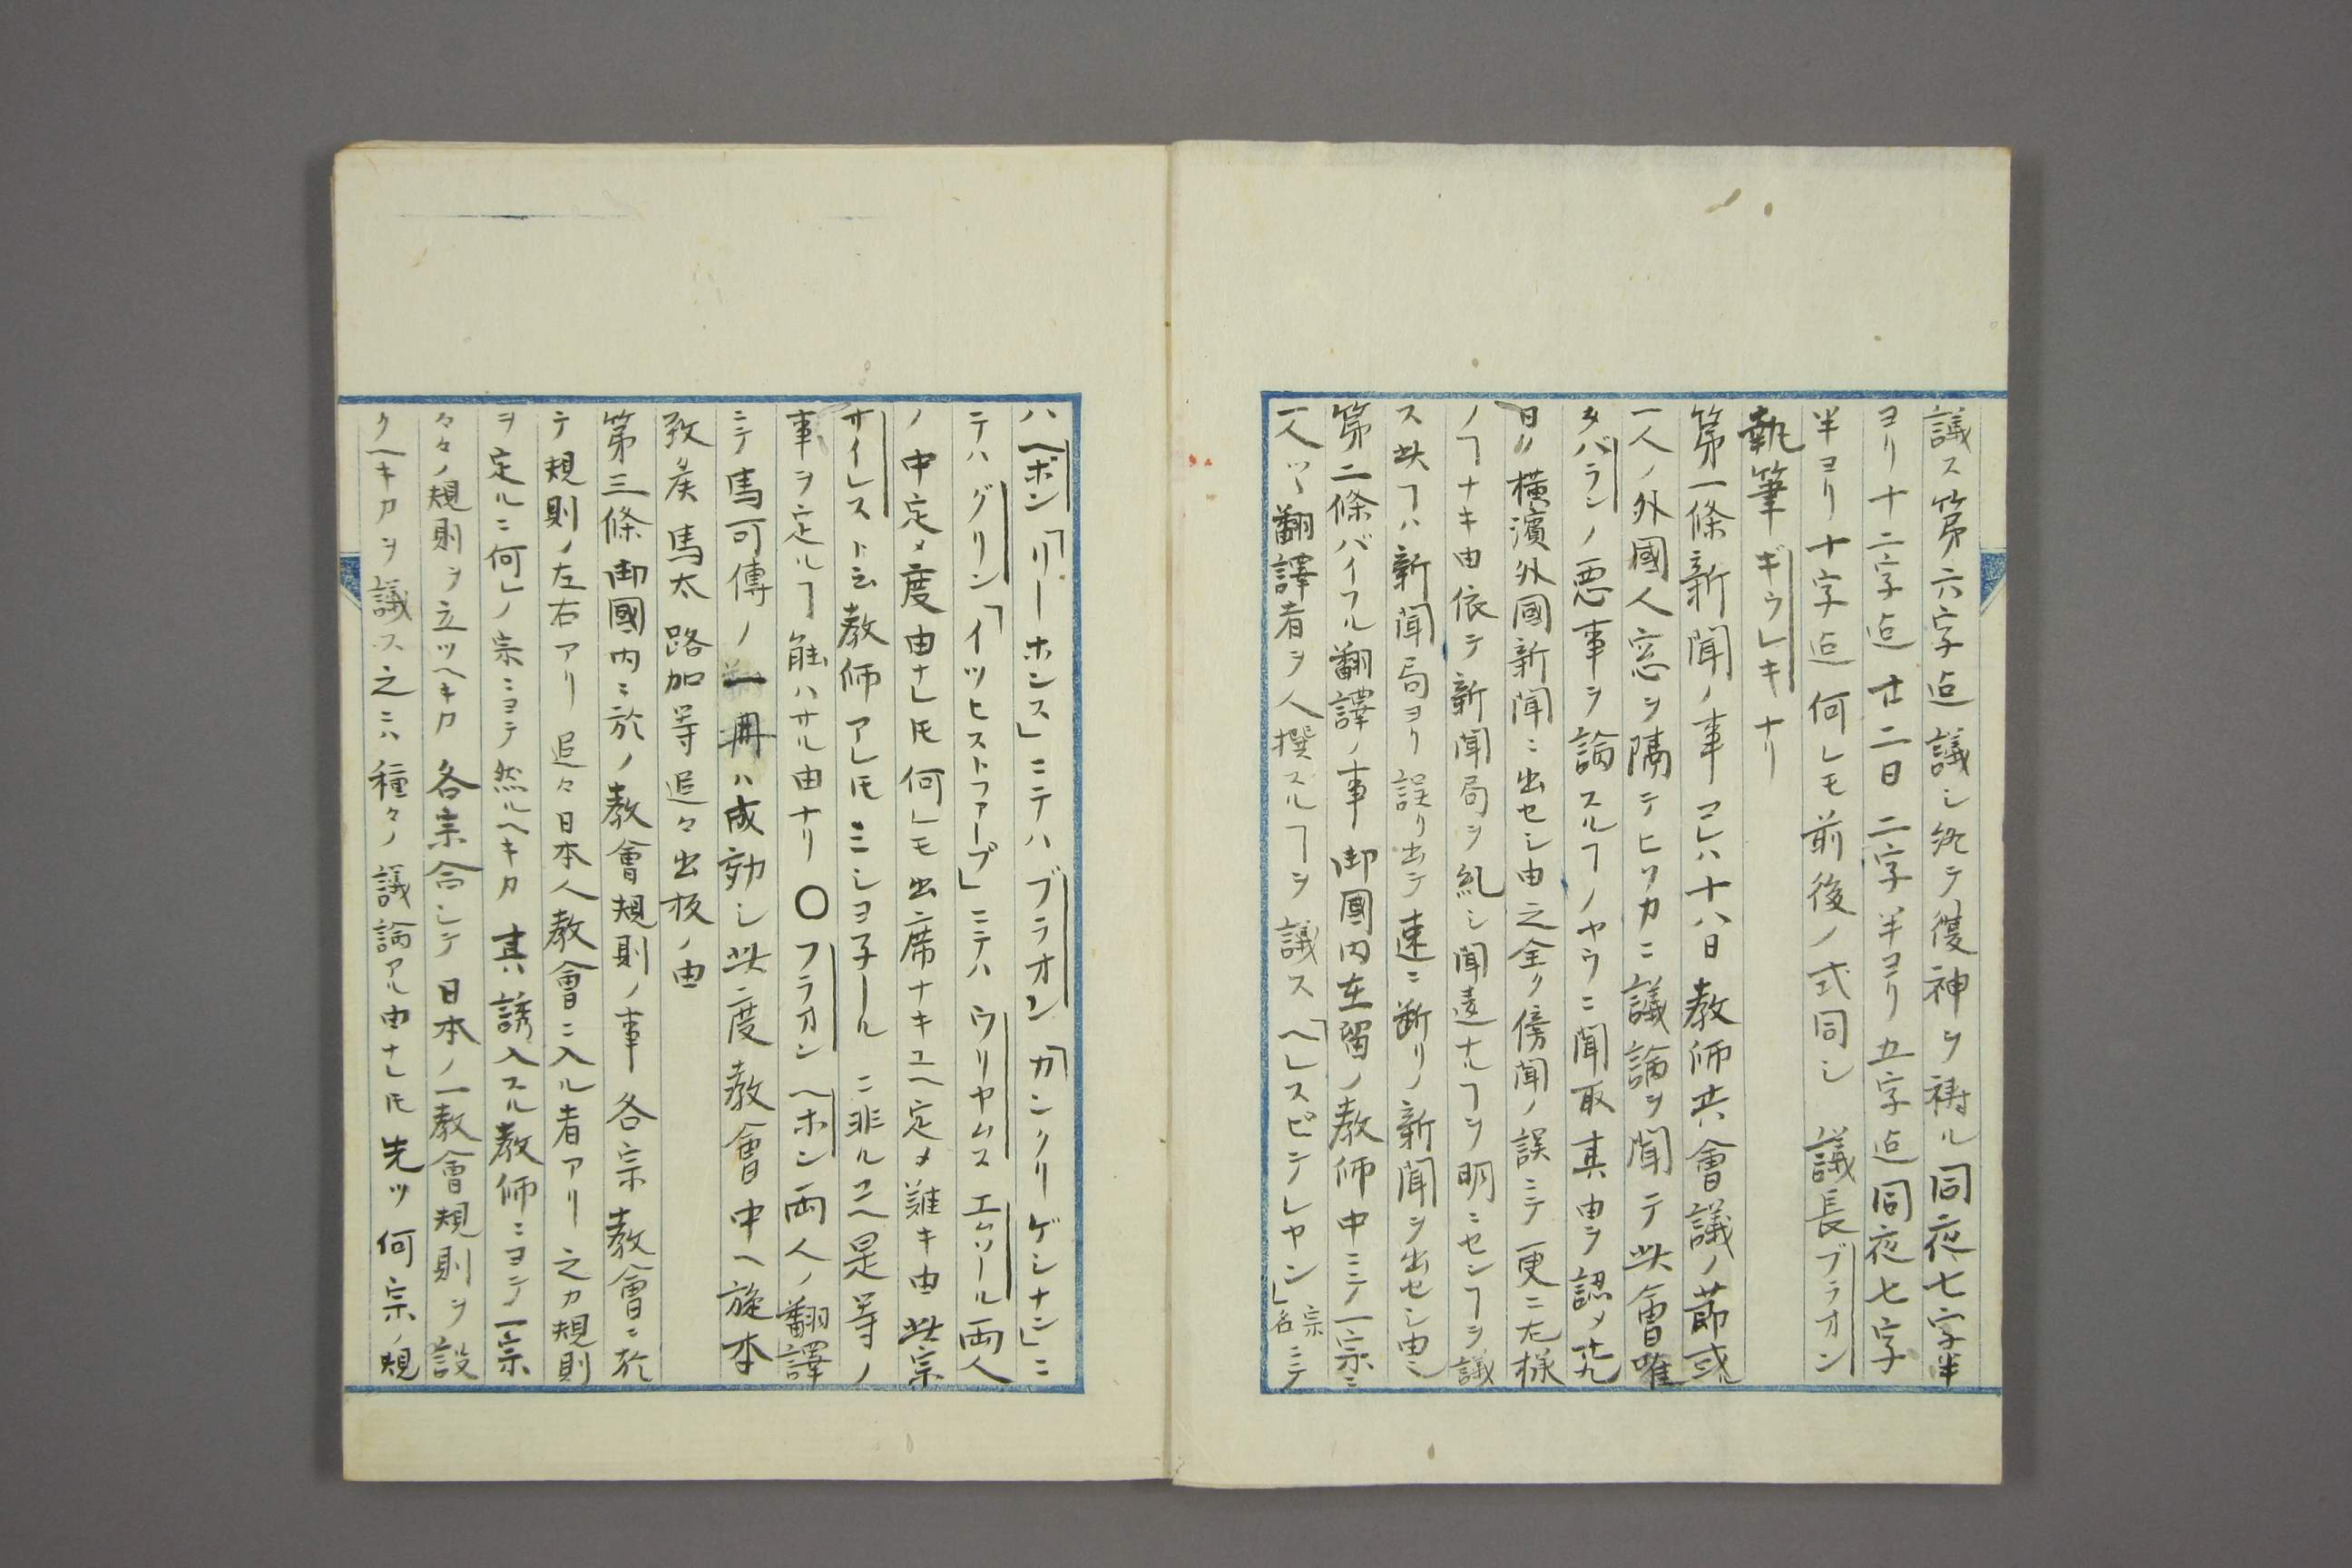 議ス第六字迄議シ終テ復神ヲ祷ル同夜七字半
ヨリ十二字迄廿二日二字半ヨリ五字迄同夜七字
半ヨリ十字迄何レモ前後ノ式同シ議長ブラオン
執筆ギウレキナリ
第一條新聞ノ事コレハ十八日教師共會議ノ節或
一人ノ外國人窓ヲ隔テヒソカニ議論ヲ聞テ此會唯
タバランノ悪事ヲ論スルヿノヤウニ聞取其由ヲ認メ廿九
日ノ横濱外國新聞ニ出セシ由之全ク傍聞ノ誤ニテ更ニ左様
ノヿナキ由依テ新聞局ヲ糺シ聞違ナルヿヲ明ニセンヿヲ議
ス此ヿハ新聞局ヨリ誤リ出テ速ニ断リノ新聞ヲ出セシ由ニ
第二條バイフル翻譯ノ事御國内在留ノ教師中ニテ一宗ニ
一人ツヽ翻譯者ヲ人撰スルヿヲ議ス「ヘレスビテレヤン」宗名ニテ
ハヘボン「リーホンス」ニテハブラオン「カンクリゲシナン」ニ
テハグリン「イツヒストファーブ」ニテハウリヤムスエムソール両人
ノ中定メ度由ナレ𪜈何レモ出席ナキユヘ定メ難キ由此宗
サイレスト云教師アレ𪜈ミシヨ子ールニ非ルユヘ是等ノ
事ヲ定ルヿ能ハサル由ナリ〇フラオンヘホン両人ノ翻譯
ニテ馬可傳ノ一冊ハ成効シ此度教會中ヘ施本
致矦馬太路加等追々出板ノ由
第三條御國内ニ於ノ教會規則ノ事各宗教會ニ於
テ規則ノ左右アリ追々日本人教會ニ入ル者アリ之カ規則
ヲ定ルニ何レノ宗ニヨテ然ルヘキカ其誘入スル教師ニヨテ一宗
々々ノ規則ヲ立ツヘキカ各宗合シテ日本ノ一教會規則ヲ設
クヘキカヲ議ス之ニハ種々ノ議論アル由ナレ𪜈先ツ何宗ノ規